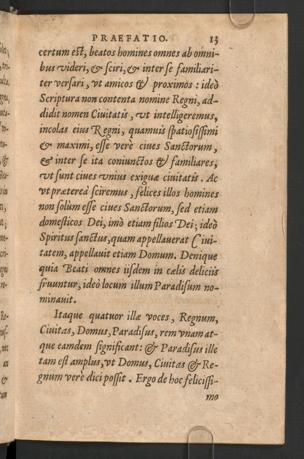 PRAEFATIO. 13
certum est, beatos homines omnes ab omni-
bus videri, & sciri, & inter se familiari-
ter versari, vt amicos & proximos: ideò
Scriptura non contenta nomine Regni, ad-
didit nomen Ciuitatis, vt intelligeremus,
incolas eius Regni, quamuis spatiosissimi
& maximi, esse verè ciues Sanctorum,
& inter se ita coniunctos & familiares,
vt sunt ciues vnius exiguæ ciuitatis. Ac
vt præterea sciremus, felices illos homines
non solùm esse ciues Sanctorum, sed etiam
domesticos Dei, imò etiam filios Dei; ideò
Spiritus sanctus, quam appellauerat Ciui-
tatem, appellauit etiam Domum. Denique
quia Beati omnes iisdem in cælis deliciis
fruuntur, ideò locum illum Paradisum no-
minauit.
Itaque quatuor illæ voces, Regnum,
Ciuitas, Domus, Paradisus, rem vnam at-
que eamdem significant: & Paradisus ille
tam est amplus, vt Domus, Ciuitas & Re-
gnum verè dici possit. Ergo de hoc felicissi-
mo